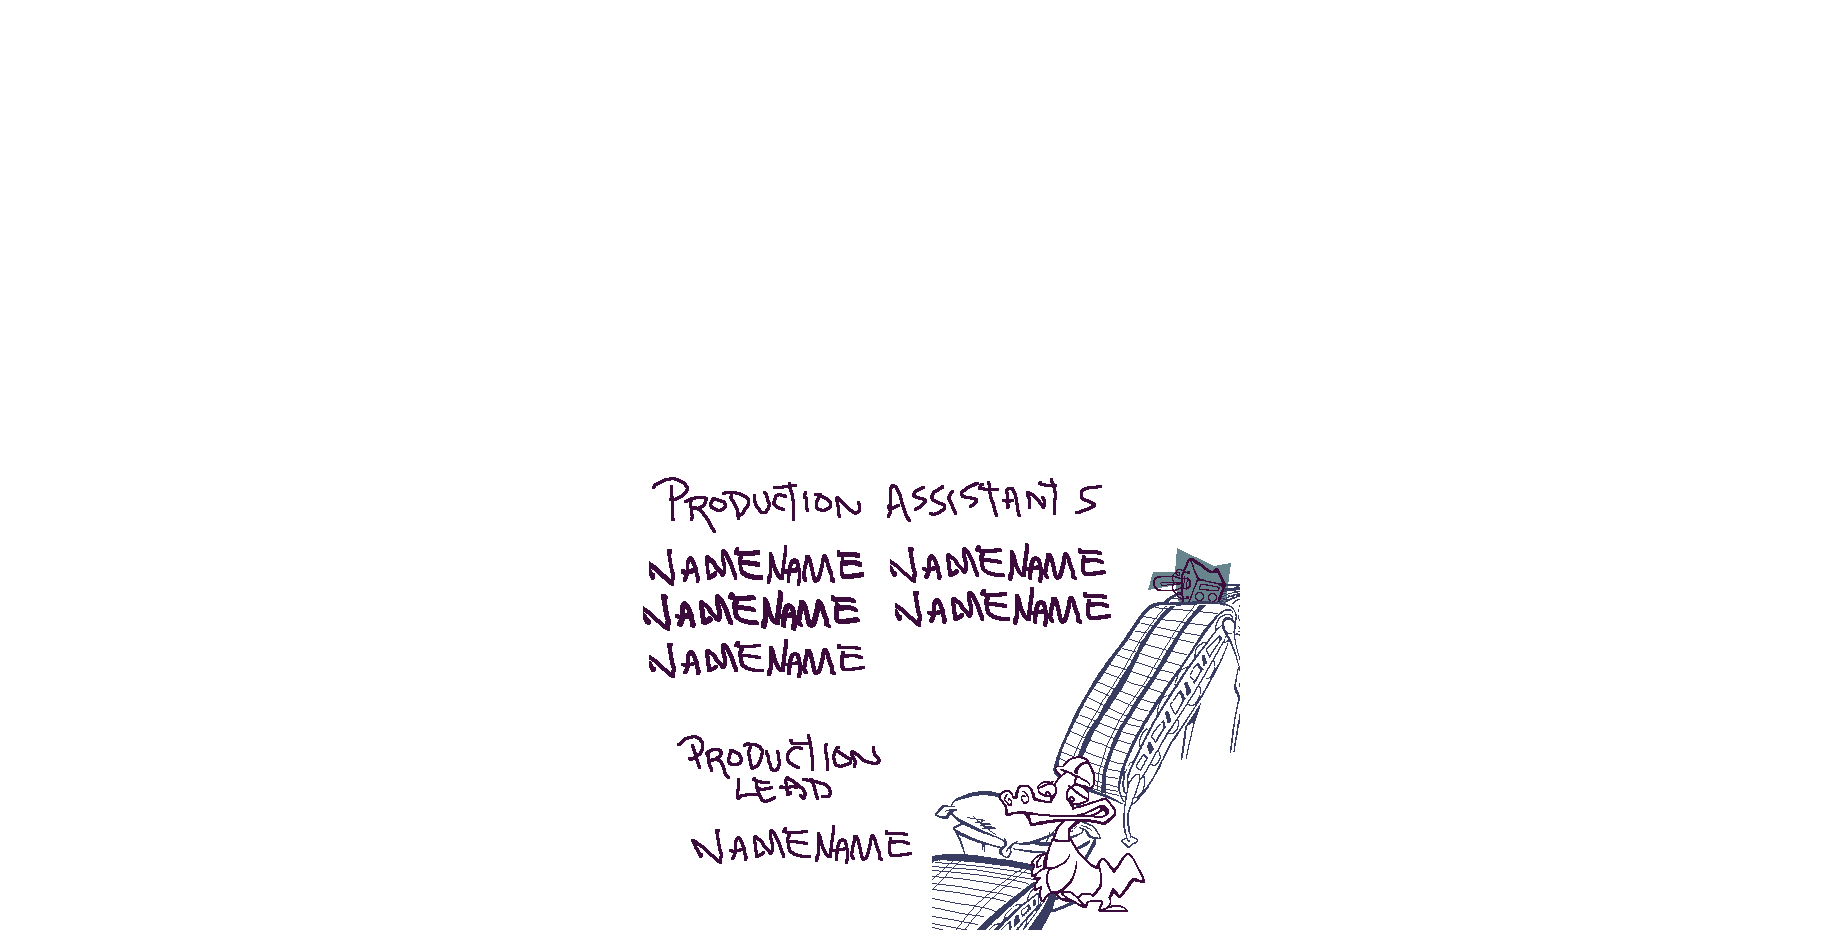 PRODUCTION ASSISTANTS
NAMENAME NAMENAME
NAMENAME NAMENAME
NAMENAME
PRODUCTION
LEAD
NAMENAME